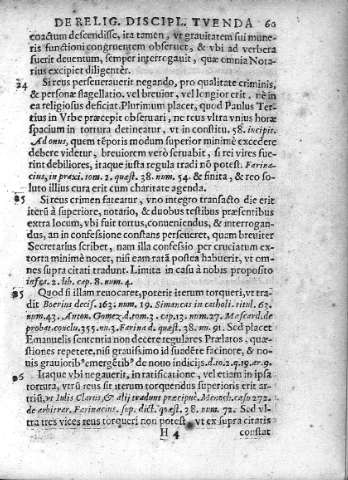 DE RELIG. DISCIPL. TVENDA 60
coactum descendisse, ita tamen, vt grauitatem sui mune-
ris functioni congruentem obseruet, & vbi ad verbera
fuerit deuentum, semper interrogauit, quæ omnia Nota-
rius excipiet diligenter.
24 Si reus perseuerauerit negando, pro qualitate criminis,
& personæ flagellatio, vel breuior, vel longior erit, nè in
ea religiosus deficiat. Plurimum placet, quod Paulus Ter-
tius in Vrbe præcepit obseruari, ne reus vltra vnius horæ
spacium in tortura detineatur, vt in constitu. 58. incipit.
Ad onus, quem tēporis modum superior minimè excedere
debere videtur, breuiorem verò seruabit, si rei vires fue-
rint debiliores, itaque iusta regula tradi nō potest. Farina-
cius, in praxi. tom. 2. quæst. 38. num. 54. & finita, & reo so-
luto illius cura erit cum charitate agenda.
25 Si reus crimen fateatur, vno integro transacto die erit
iterū à superiore, notario, & duobus testibus præsentibus
extra locum, vbi fuit tortus, conueniendus, & interrogan-
dus, an in confessione constans perseueret, quam breuiter
Secretarius scribet, nam illa confessio per cruciatum ex-
torta minimè nocet, nisi eam ratā postea habuerit, vt om-
nes supra citati tradunt. Limita in casu à nobis proposito
infra. 2. lib. cap. 8. num. 4.
35 Quod si illam reuocaret, poterit iterum torqueri, vt tra-
dit Boerius decis. 163. num. 19. Simancas in catholi. titul. 62.
num. 43. Anton. Gomez. d. tom. 3. cap. 13. num. 27. Mascard. de
probat. conclu. 355. nu. 3. Farina d. quæst. 38. nu. 91. Sed placet
Emanuelis sententia non decere regulares Prælatos, quæ-
stiones repetere, nisi grauissimo id suadēte facinore, & no-
uis grauiorib' emergētib' de nouo indicijs. d. to. 2. q. 19. ar. 9.
36 Itaque vbi negauerit, in ratificatione, vel etiam in ipsa
tortura, vtrū reus sit iterum torquendus superioris erit ar-
bitrij, vt Iulis Clarus, & alij tradunt præcipuè. Menoch. casu 272.
de arbitrar. Farinacius. sup. dict. quæst. 38. num. 72. Sed vl-
tra tres vices reus torqueri non potest, vt ex supra citatis
H 4 constat